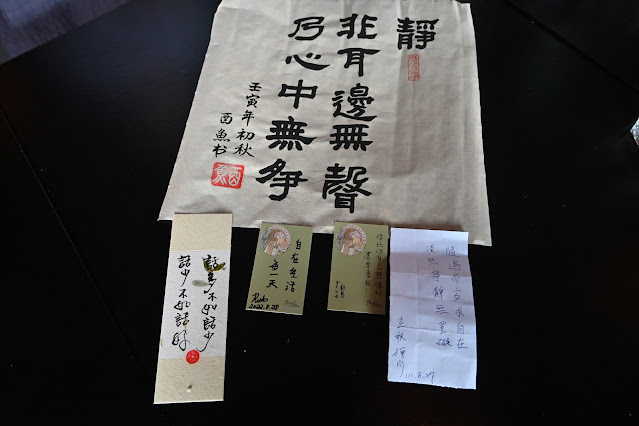 靜
非耳邊無聲
乃心中無爭
壬寅年初秋
酉魚书
酉魚
話多不如話少
話少不如話好
自在生活
每一天
2022.8.28
隨遇而安 自在
淡然寧靜
111.8.27